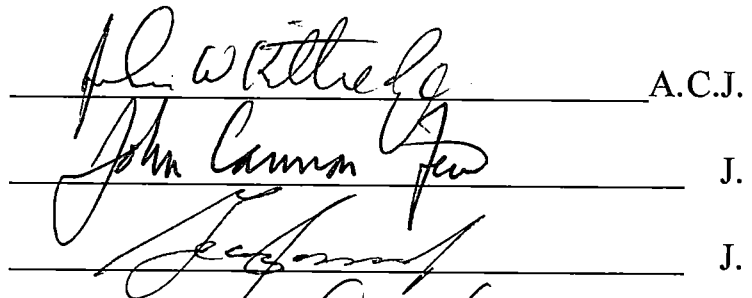 John W Kittredge A.C.J.
John Cannon Few J.
J.